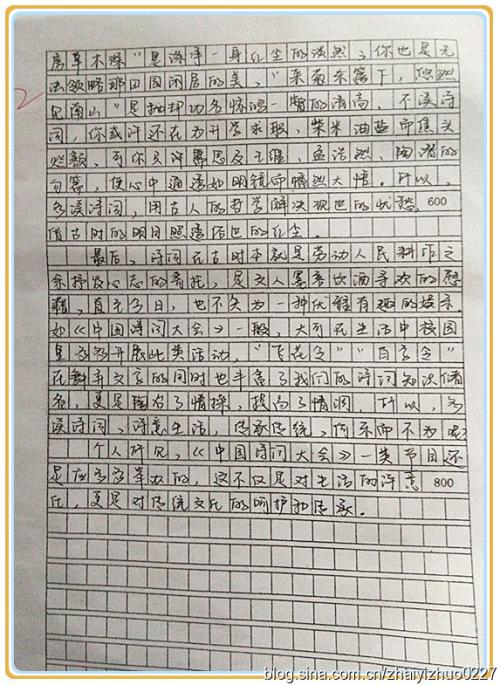 房草木深"是涤净一身红尘的淡然，你也是无
法领略那田园闲居的美。"采菊东篱下，悠然
见南山"是抛却功名惊鸿一瞥的清高。不读诗
词，你或许还在为升学求职，柴米油盐而焦头
烂额，可你只许需思及王维、孟浩然、陶潜的
句篇，便心中通透如明镜而幡然大悟。所以，
多读诗词，用古人的哲学解决现世的忧愁
600
借古时的明月照透
最后，诗词在古时本就是劳动人民耕作之
余抒发心志的寄托，是文人墨客饮酒寻欢的慰
藉，直至今日，也不失为一种优雅有趣的娱乐。
如《中国诗词大会》一般，大到在生活中校园
里多多开展此类活动，"飞花令""百字令"
在舞弄文字的同时也丰富了我们的诗词知识储
备，更是陶冶了情操，提高了情调，所以，多
读诗词，诗意生活，传承传统，何乐而不为呢
个人所见，《中国诗词大会》一类节目还
是应多多举办的，这不仅是对生活的诗意
800
更是对传统文化的呵护和传承。
2
blog.sina.com.cn/zhaiyizhuo0227